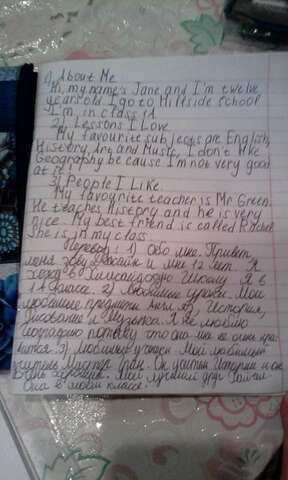 1) About Me
Hi, my name's Jane and I'm twelve
years old. I go to Hillside School
I'm in class 1A
2) Lessons I Love
My favourite subjects are English,
History, Art and Music, I don't like
Geography because I'm not very good
at it!
3) People I Like
My favourite teacher is Mr Green.
He teaches History and he is very
nice. My best friend is called Rachel
She is in my class.
Перевод: 1) Обо мне. Привет,
меня зовут Джейн и мне 12 лет. Я
хожу в Школу Я в
1A классе. 2) Любимые уроки. Мои
предметы История,
Рисование и Музыка. Я не люблю
Географию потому что она мне не очень
3) Мой любимый
учитель Мистер Грин. Он учитель Истории и он
Мой лучший друг
Она в моём классе.